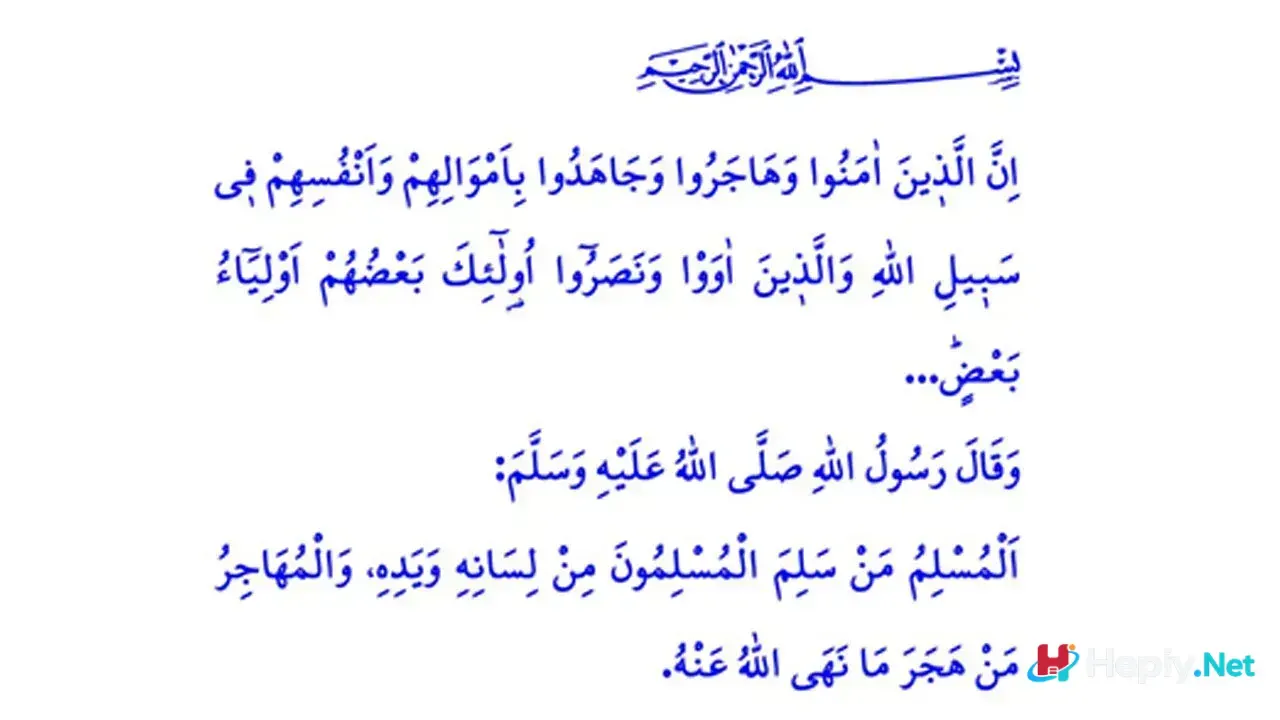 بِسْمِ اللهِ الرَّحْمٰنِ الرَّحِيمِ
اِنَّ الَّذ۪ينَ اٰمَنُوا وَهَاجَرُوا وَجَاهَدُوا بِاَمْوَالِهِمْ وَاَنْفُسِهِمْ ف۪ي
سَب۪يلِ اللهِ وَالَّذ۪ينَ اٰوَوْا وَنَصَرُٓوا اُو۬لٰٓئِكَ بَعْضُهُمْ اَوْلِيَٓاءُ
بَعْضٍۜ...
وَقَالَ رَسُولُ اللهِ صَلَّى اللهُ عَلَيْهِ وَسَلَّمَ:
اَلْمُسْلِمُ مَنْ سَلِمَ الْمُسْلِمُونَ مِنْ لِسَانِهِ وَيَدِهِ، وَالْمُهَاجِرُ
مَنْ هَجَرَ مَا نَهَى اللهُ عَنْهُ.
Heply.Net